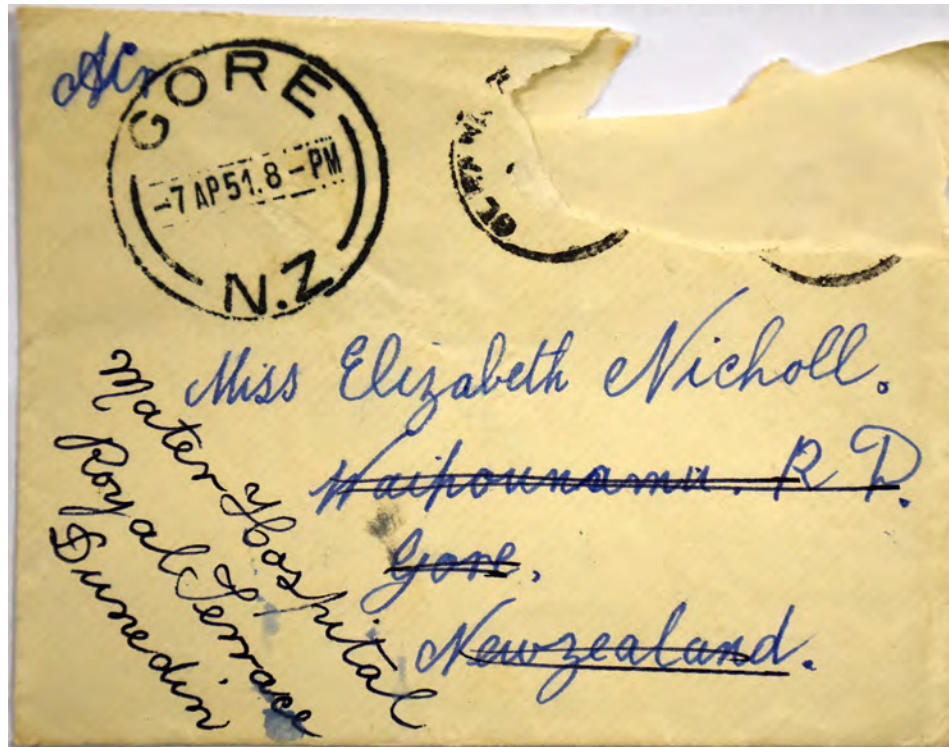 Air
GORE
-7 AP 51.8 - PM
N.Z
Miss Elizabeth Nicholl.
Waipounamu. R D.
Gore.
Newzealand.
Mater Hospital
Royal Terrace
Dunedin